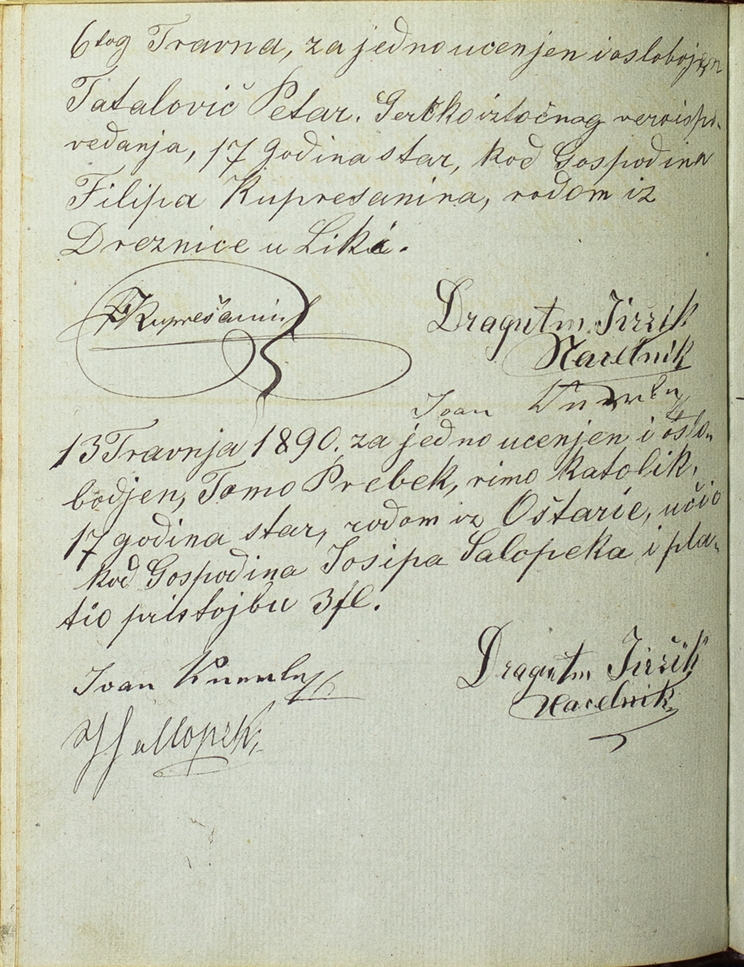 6tog Travna, za jedno ucenjen i oslobojen
Tatalovič Petar. Gerčko iztočnog veroispo-
vedanja, 17 godina star, kod Gospodina
Filipa Kupresanina, rodom iz
Dreznice u Liki.
FKuprešanin
Dragutin Jiržik
Nacelnik
Ivan
13 Travnja 1890, za jedno ucenjen i oslo-
bodjen, Tomo Prebek, rimo katolik,
17 godina star, rodom iz Oštarie, učio
kod Gospodina Josipa Salopeka i pla-
tio pristojbu 3fl.
Ivan
Dragutin Jiržik
Nacelnik
JSallopek